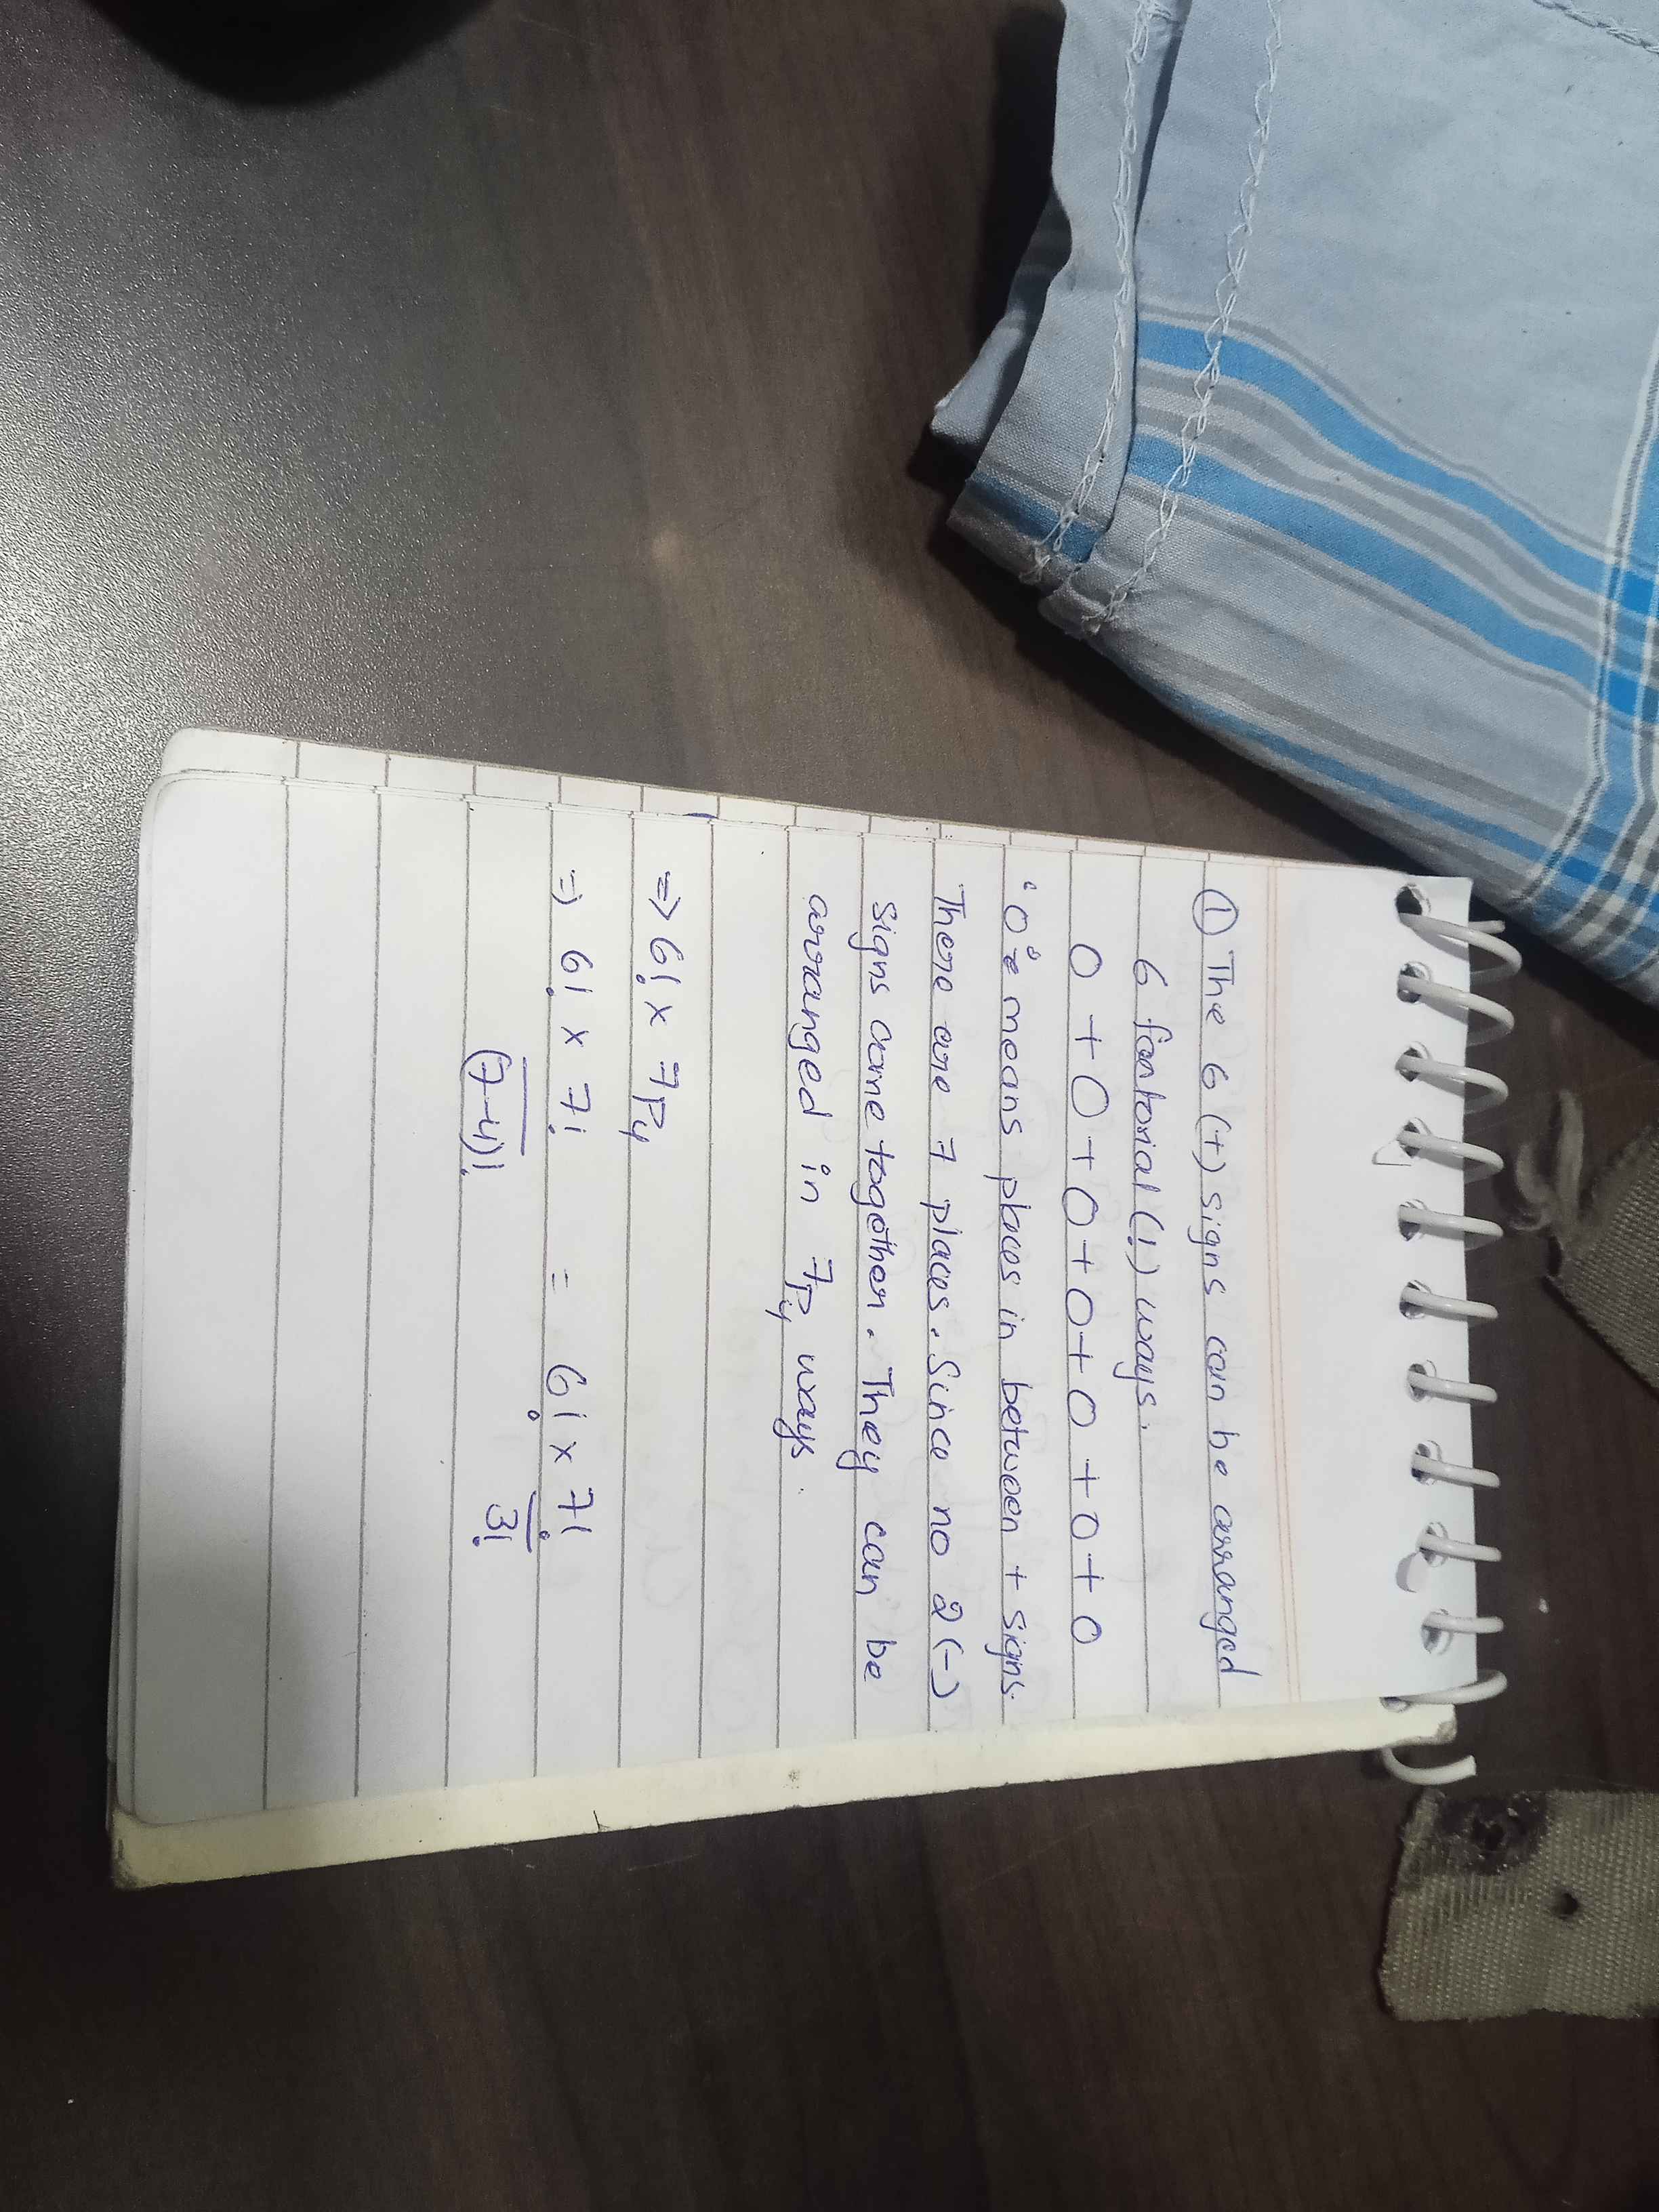 ① The 6 (+) signs can be arranged
6 factorial (!) ways.
0 + 0 + 0 + 0 + 0 + 0 + 0
"0" means places in between + signs.
There are 7 places. Since no 2 (-)
signs come together. They can be
arranged in 7P4 ways.
=> 6! x 7P4
=> 6! x 7! / (7-4)! = 6! x 7! / 3!